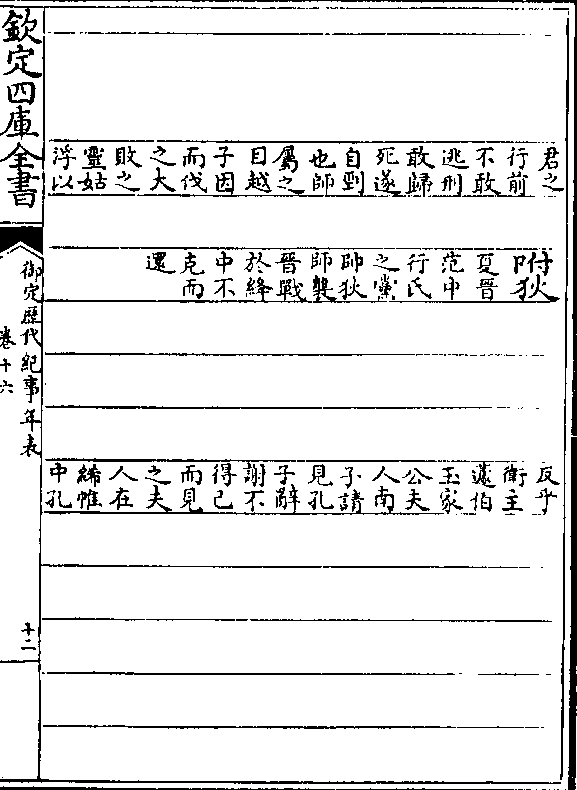 君之
行前
不敢
逃刑
敢歸
死遂
自剄
也師
屬之
目越
子因
而伐
之大
敗之
靈姑
浮以
附狄
夏晉
范中
行氏
之黨
帥狄
師襲
晉戰
於絳
中不
克而
還
反乎
衛主
蘧伯
玉家
公夫
人南
子請
見孔
子辭
謝不
得已
而見
之夫
人在
絺帷
中孔
欽定四庫全書
御定歷代紀事年表
卷十六
十二